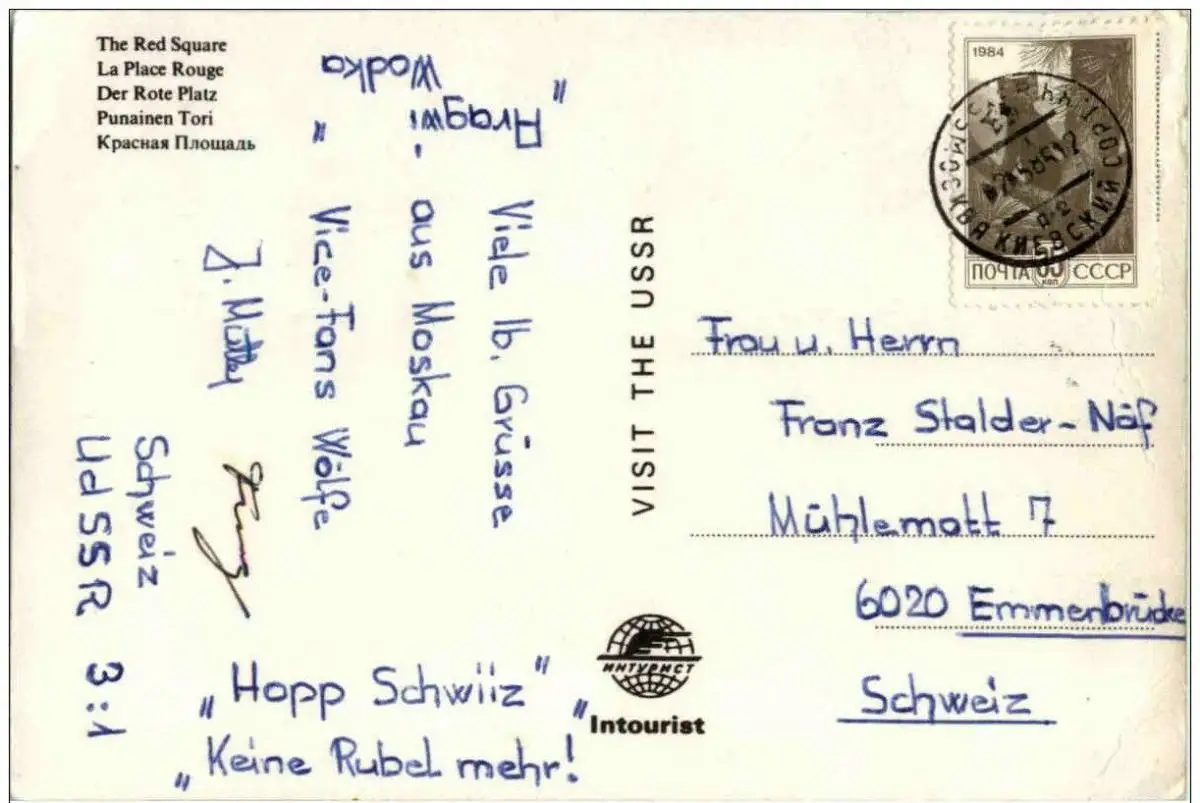 The Red Square
La Place Rouge
Der Rote Platz
Punainen Tori
Красная Площадь
„Aragwi -
Wodka"
Viele lb. Grüsse
aus Moskau
Vice-Fans Wölfe
J. Müller
Schweiz
UdSSR 3:1
„Hopp Schwiiz"
„Keine Rubel mehr!"
VISIT THE USSR
ИНТУРИСТ
Intourist
1984
ПОЧТА 35 коп СССР
МОСКВА КИЕВСКИЙ
Frau u. Herrn
Franz Stalder-Näf
Mühlematt 7
6020 Emmenbrücke
Schweiz